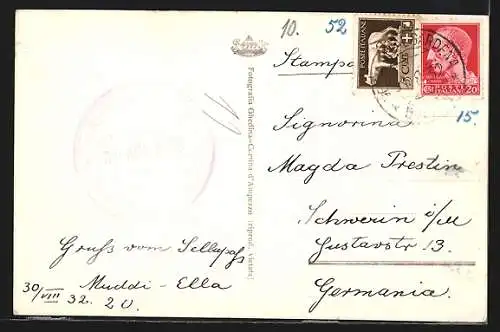 10. 52
Stampa
POSTE ITALIANE
CENT. 5
POSTE ITALIANE
20
GARDENA
15.
Signorina
Magda Prestin
Schwerin i/M
Gustavstr 13.
Germania.
Fotografia Ghedina - Cortina d'Ampezzo (Riprod. Vietata)
Gruß vom Sellapaß
Muddi - Ella
30/VIII 32. 20.